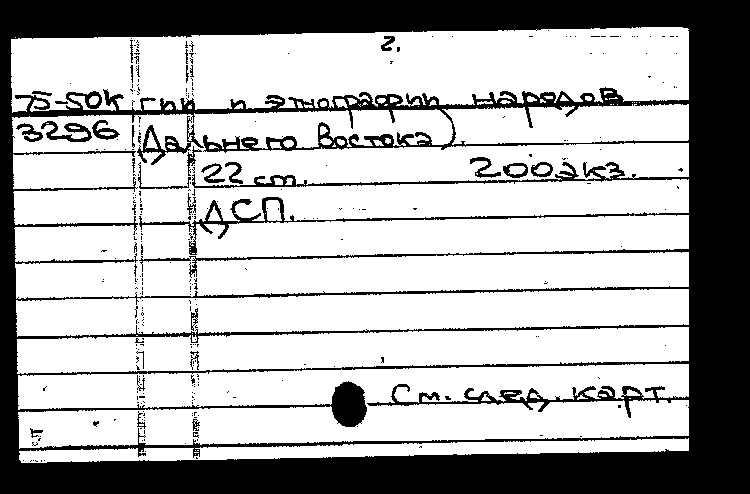 2.
75-50к гии и этнографии народов
3296 Дальнего Востока).
22 cm. 200экз.
ДСП.
См. след. карт.